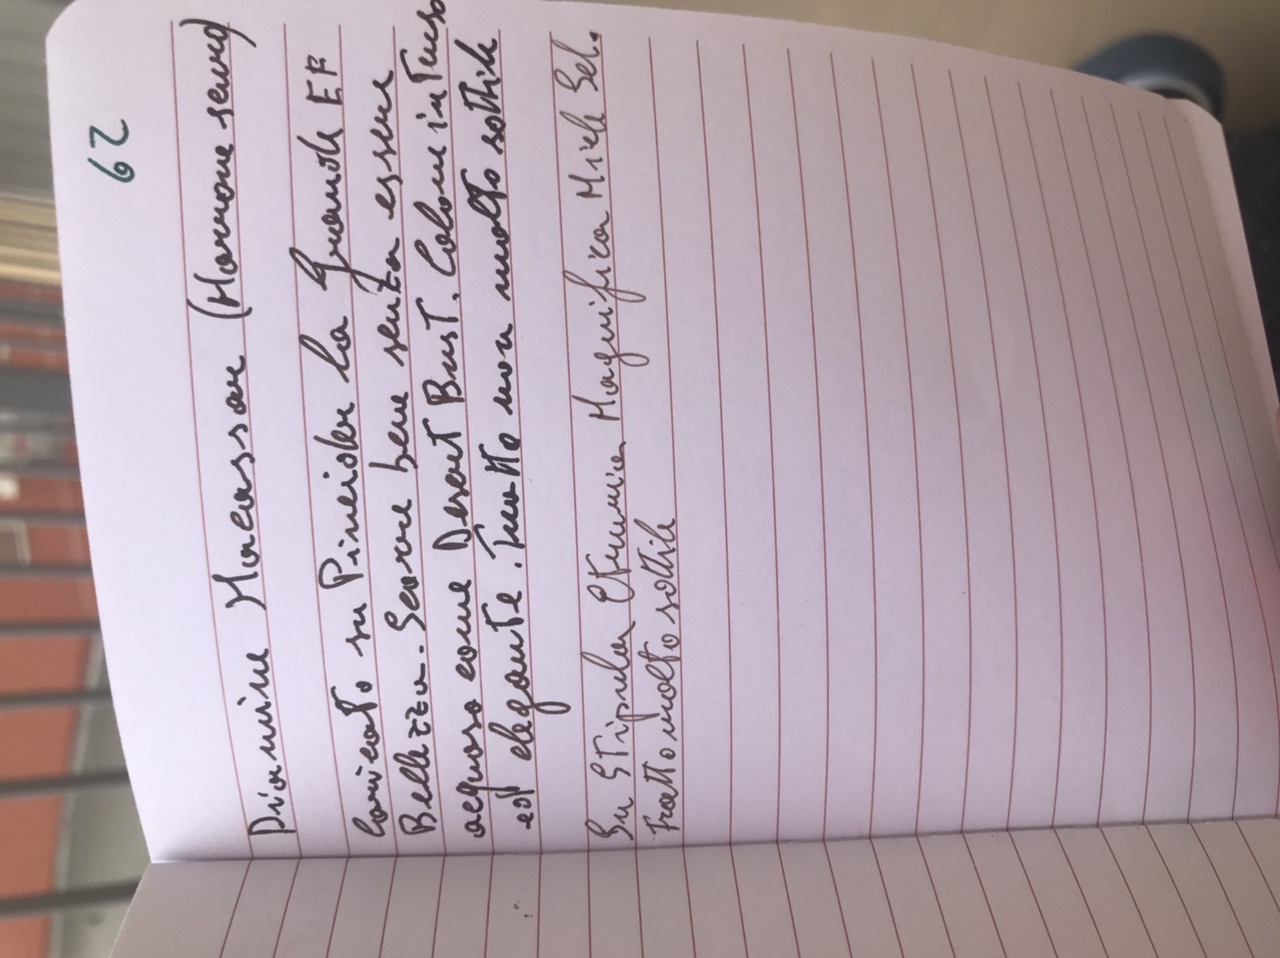 29
Diamine Macassar (Marrone scuro)
Caricato su Pineider La Grande EF
Bellezza. Scorre bene senza essere
acquoso come Desert Burst. Colore intenso
ed elegante. Tratto non molto sottile
Su Stipula Etruria Magnifica
Tratto molto sottile